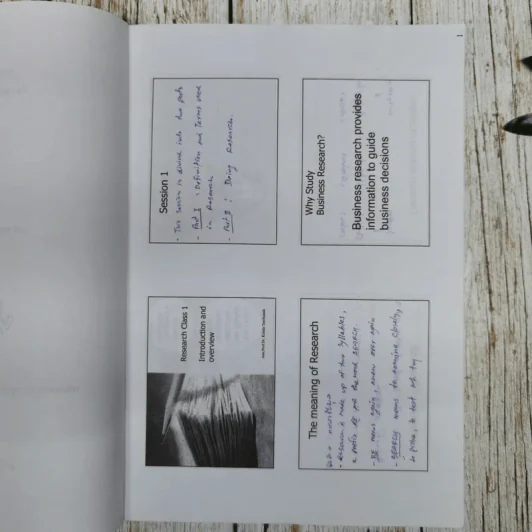 1
Research Class 1
Introduction and
overview
Session 1
- This session is divided into two parts
- Part I : Definition and Terms used
in Research
- Part II : Doing Research.
The meaning of Research
- Research is made up of two syllables,
a prefix RE and the word SEARCH.
- RE means again, anew over again
- SEARCH means to examine closely,
to probe, to test or try
Why Study
Business Research?
Business research provides
information to guide
business decisions